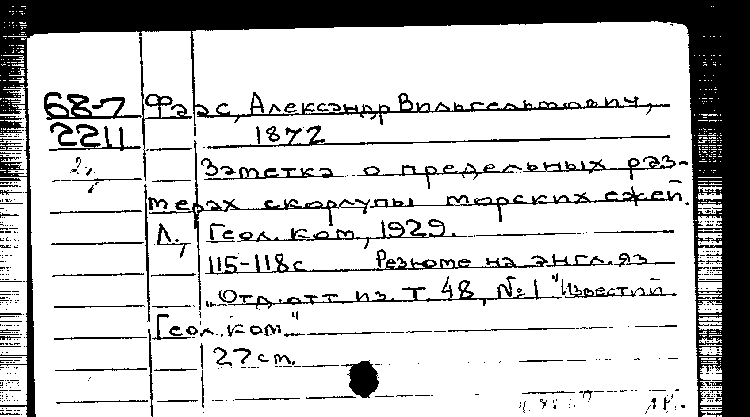 68-7 Фаас, Александр Вильгельмович,
2211 1872
Заметка о предельных раз-
мерах скорлупы морских ежей.
Л., Геол. ком., 1929.
115-118 с Резюме на англ. яз
"Отд. отт из. Т. 48, №1 "Известий
Геол. ком."
27 см.